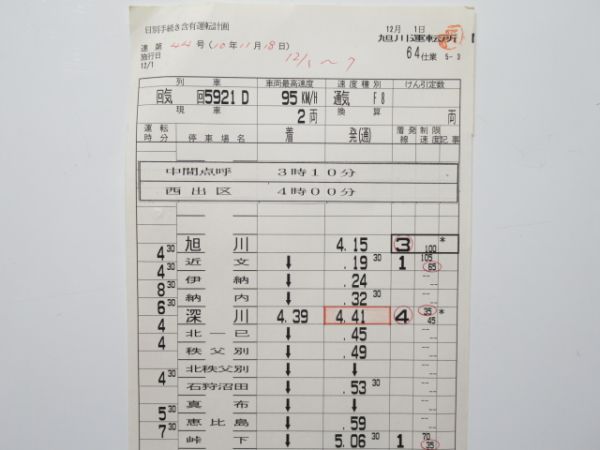 日別手続き含有運転計画
運第 44 号 (10年11月18日)
施行日
12/1
12/1 〜 7
12月 1日
旭川運転所
64仕業 5-3
列車 車両最高速度 速度種別 けん引定数
回気 回5921D 95KM/H 通気 F8
現車 2両 換算 両
運転時分 停車場名 着 発(通) 着発線 制限速度 記事
中間点呼 3時10分
西出区 4時00分
旭川 4.15 3 100 *
4 30 近文 ↓ .19 30 1 105 65
4 30 伊納 ↓ .24
8 納内 ↓ .32 30
6 30 深川 4.39 4.41 4 35 45 *
4 北一已 ↓ .45
4 秩父別 ↓ .49
北秩父別 ↓ ↓
4 30 石狩沼田 ↓ .53 30
真布 ↓ ↓
5 30 恵比島 ↓ .59
7 30 峠下 ↓ 5.06 30 1 70 35